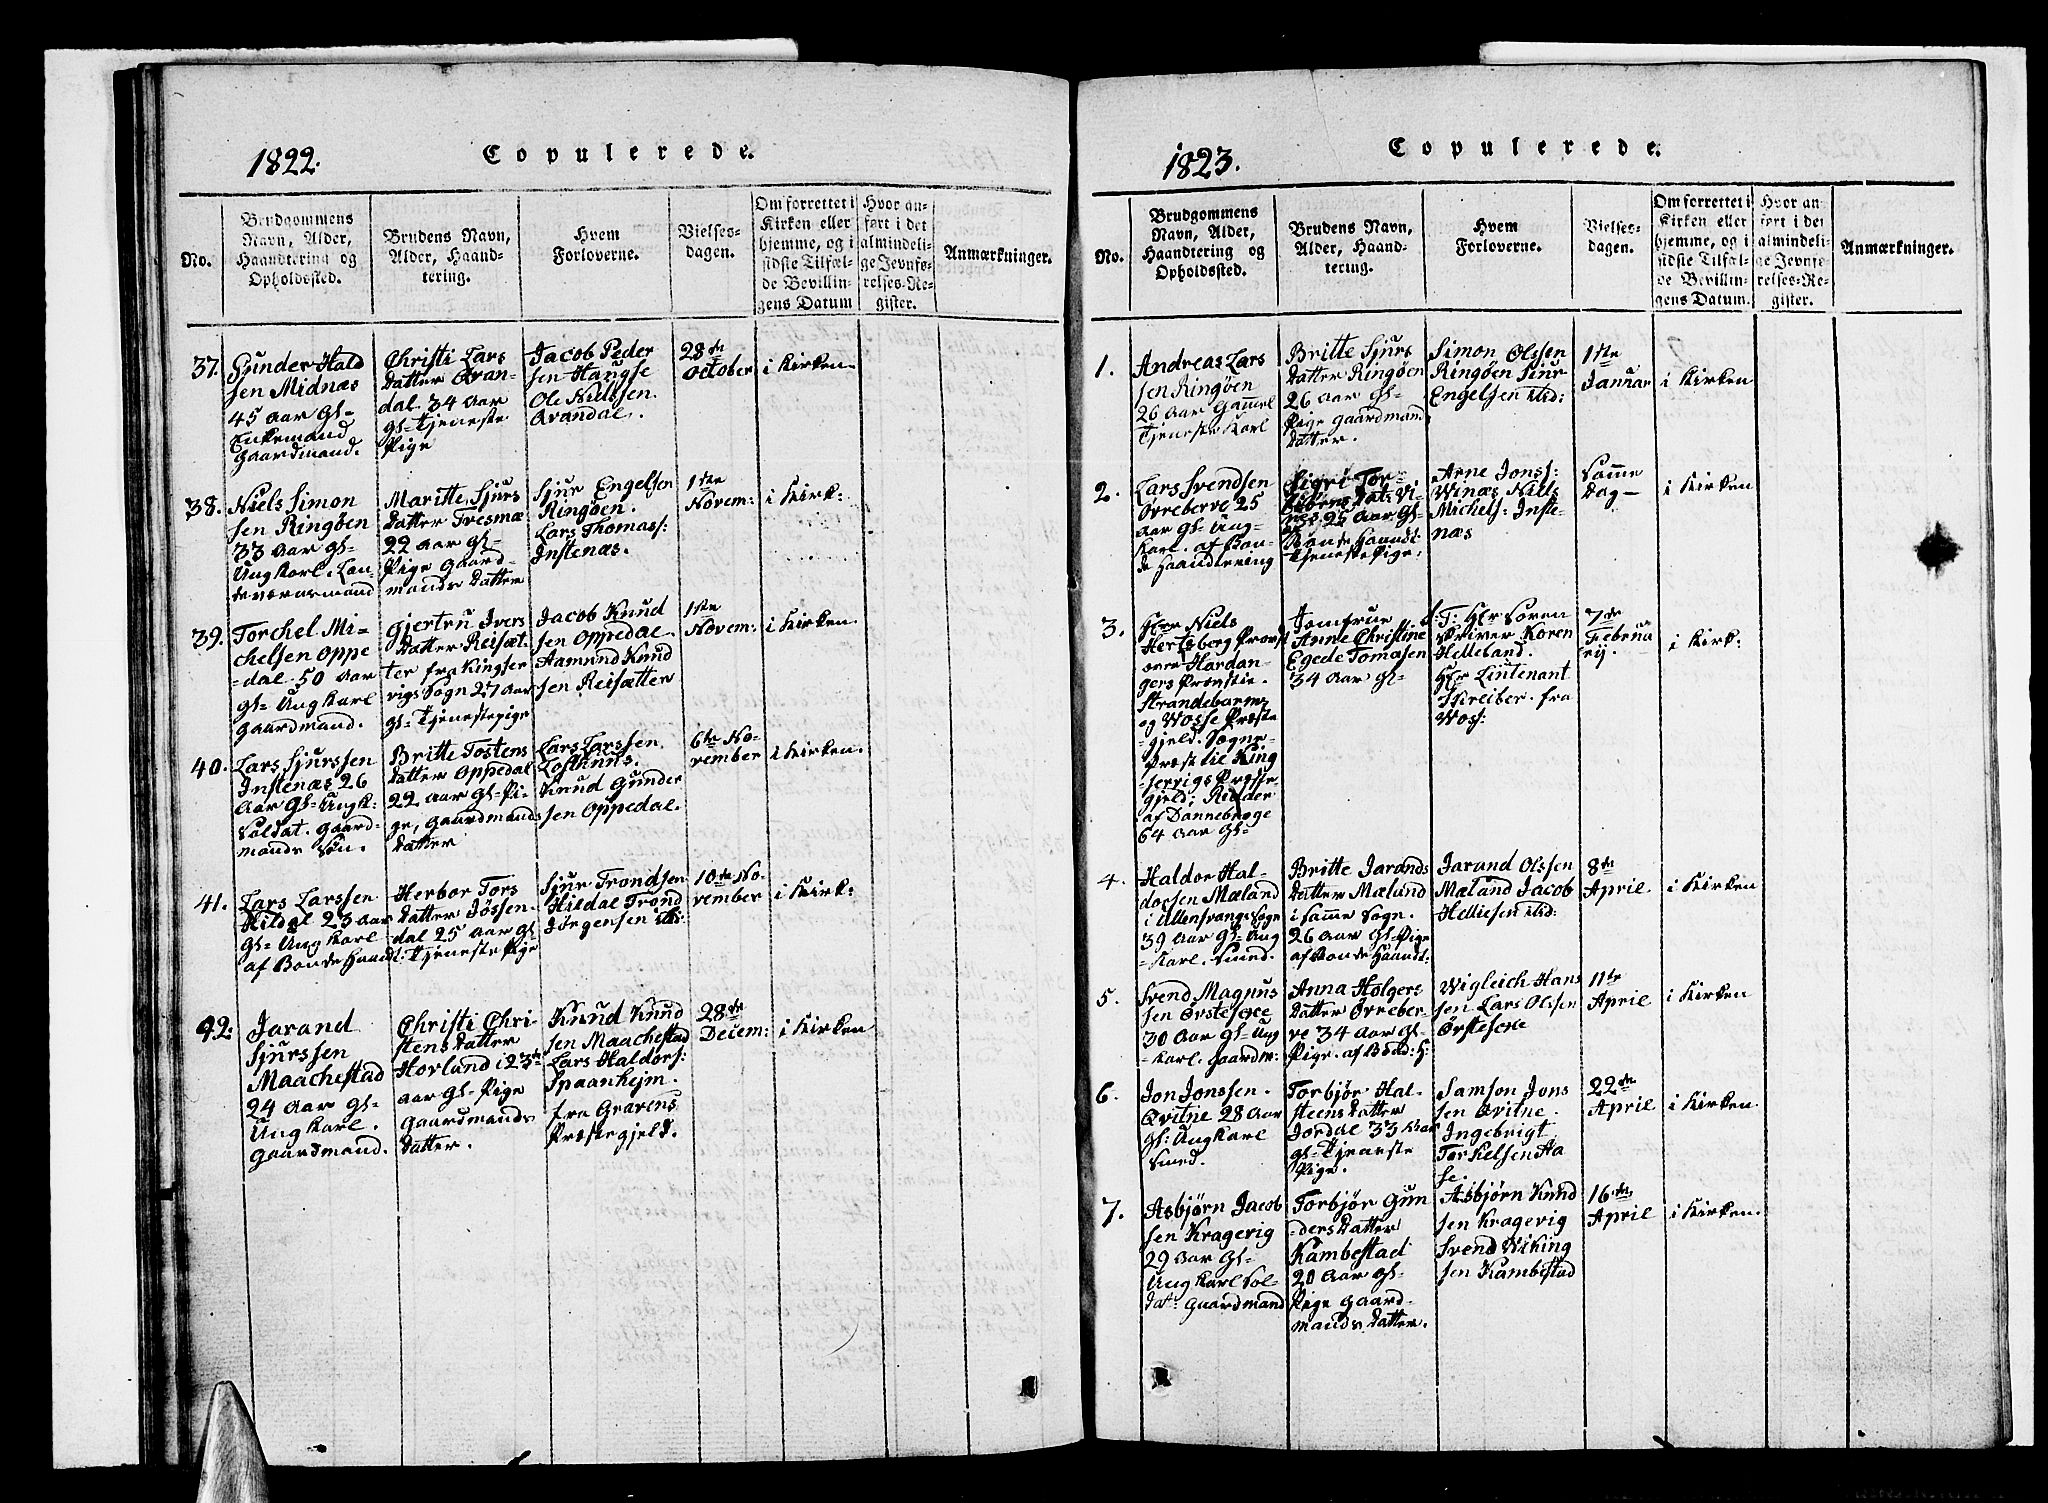 1822.
Copulerede.
No.
Brudgommens
Navn, Alder,
Haandtering og
Opholdssted.
Brudens Navn,
Alder, Haand-
tering.
Hvem
Forloverne.
Vielses-
dagen.
Om forrettet i
Kirken eller
hjemme, og i
sidste Tilfæl-
de Bevillin-
gens Datum
Hvor an-
ført i det
almindeli-
ge Jevnfø-
relses-Re-
gister.
Anmærkninger.
37.
Gunder Hald
sen Midnæs
45 aar gl-
Enkemand
gaardmand.
Christi Lars
datter Qvan-
dal 34 aar
gl- Tjeneste
Pige
Jacob Peder
sen Haugse
Ole Nielssen
Qvandal.
28de
October
i Kirken.
38.
Niels Simon
sen Ringøen
33 aar gl-
Ungkarl. Lan-
deværnsmand
Maritte Sjurs
datter Tresnæ
22 aar gl-
Pige gaard-
mands datter
Sjur Engelsen
Ringøen.
Lars Thomass:
Instenæs.
1ste
Novem:
i Kirk:
39.
Torchel Mi-
chelsen Oppe
-dal 50 aar
gl- Ungkarl
gaardmand.
Gjertru Ivers
datter Reisæt-
ter fra Kingser
vigs Sogn 27 aar
gl- Tjenestepige
Jacob Knud
sen Oppedal
Aamund Knud
sen Reisætter
1ste
Novem:
i Kirken.
40.
Lars Sjurssen
Instenæs 26
aar gl- Ungk:
Soldat. gaard-
mands Søn.
Britte Tostens
datter Oppedal
22 aar gl- Pi-
ge, gaardmands
datter
Lars Larssen
Lofthuus.
Knud Gunder
sen Oppedal.
6te No-
vember
i Kirken.
41.
Lars Larssen
Hildal 23 aar
gl- Ungkarl
af Bonde Haandt:
Herbor Tors
datter Jøssen-
dal 25 aar gl
Tjeneste Pige
Sjur Trondsen
Hildal Trond
Jørgensen ibi:
10de No-
vember
i Kirk:
42.
Jarand
Sjurssen
Maachestad
24 aar gl-
Ungkarl.
gaardmand.
Christi Chri-
stens datter
Hovland i 23de
aar gl- Pige
gaardmands
datter.
Knud Knud
sen Maachestad
Lars Haldors:
Spaanhejm.
fra Gravens
Præstegjeld.
28de
Decem:
i Kirken
1823.
Copulerede.
No.
Brudgommens
Navn, Alder,
Haandtering og
Opholdssted.
Brudens Navn,
Alder, Haand-
tering.
Hvem
Forloverne.
Vielses-
dagen.
Om forrettet i
Kirken eller
hjemme, og i
sidste Tilfæl-
de Bevillin-
gens Datum.
Hvor an-
ført i det
almindeli-
ge Jevnfø-
relses-Re-
gister.
Anmærkninger.
1.
Andreas Lars
sen Ringøen
26 aar Gammel
Tjenestekarl
Britte Sjurs
datter Ringøen
26 aar gl-
Pige gaardmand
datter.
Simon Olssen
Ringøen Siur
Engelsen ibid:
1ste
Januar
i Kirken
2.
Lars Svendsen
Øvreberve 25
aar gl- Ung-
karl. af Bon-
de Haandtering
Sigri Tor-
25 aar gl-
Bonde Haandt:
Tjeneste Pige.
Arne Jonss:
Winæs Niels
Michels: Inste-
næs
Samme
Dag-
i Kirken
3.
Herr Niels
Hertsberg Provst
over Hardan-
gers Provstie.
Strandebarm
og Wosse Præste
gjeld. Sogne-
præst til King
servigs Præste
gjeld; Ridder
af Dannebroge
64 aar gl-
Jomfrue
Anne Christine
Egede Tomasen
34 aar gl-
T: Hr Soren
skriver Koren
Helleland.
Hr Lieutenant
Schreiber. fra
Woss:
7de
Februa
rij.
i Kirk:
4.
Haldor Hal-
dorsen Mæland
i Ullensvangs Sogn
39 aar gl- Ung
-karl. Smed.
Britte Jarands
datter Mæland
i samme Sogn.
26 aar gl- Pige
af Bonde Haandt:
Jarand Olssen
Mæland Jacob
Helliesen ibid:
8de
April
i Kirken
5.
Svend Magnus
sen Østesøe
30 aar gl- Ung
-karl. gaardm:
Anna Holgers
datter Øvreber-
ve 34 aar gl-
Pige. af Bond: H:
Wigleich Hans
sen Lars Olssen
Østesøe
11te
April
i Kirken
6.
Jon Jonssen.
Qvitne 28 aar
gl: Ungkarl
Smed.
Torbjør Hal-
steens datter
Jordal 33 aar
gl- Tjeneste
Pige.
Samson Jons
sen Qvitne.
Ingebrigt
Torkelsen Aa
se.
22de
April
i Kirken.
7.
Asbjørn Jacob
sen Kragevig
29 aar gl-
Ungkarl Sol-
dat: gaardmand
Torbjør Gun
-ders datter
Kambestad
20 aar gl-
Pige gaard-
mands datter.
Asbjørn Knud
sen Kragevig
Svend Wiking
sen Kambestad
16de
April
i Kirken.